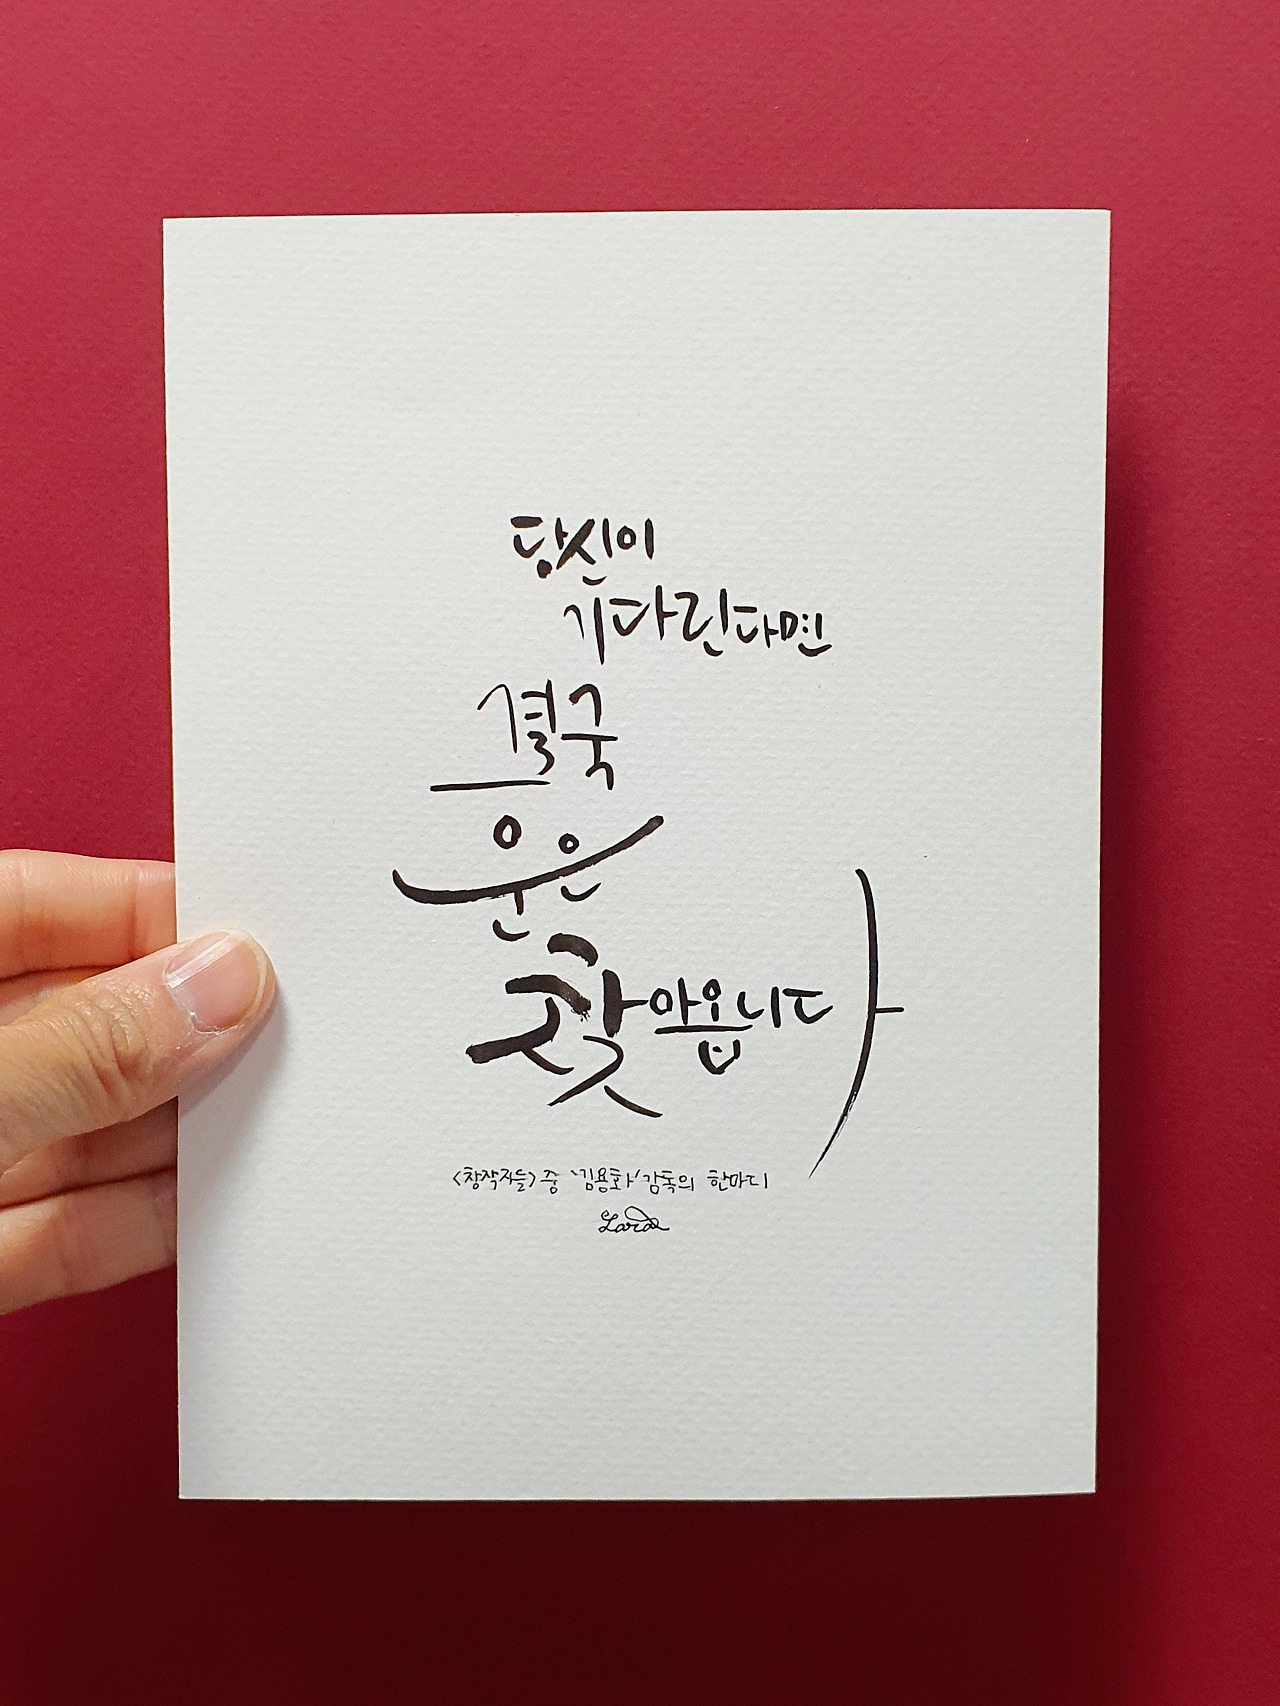 당신이
기다린다면
결국
운은
찾아옵니다
<창작자들> 중 '김용화' 감독의 한마디